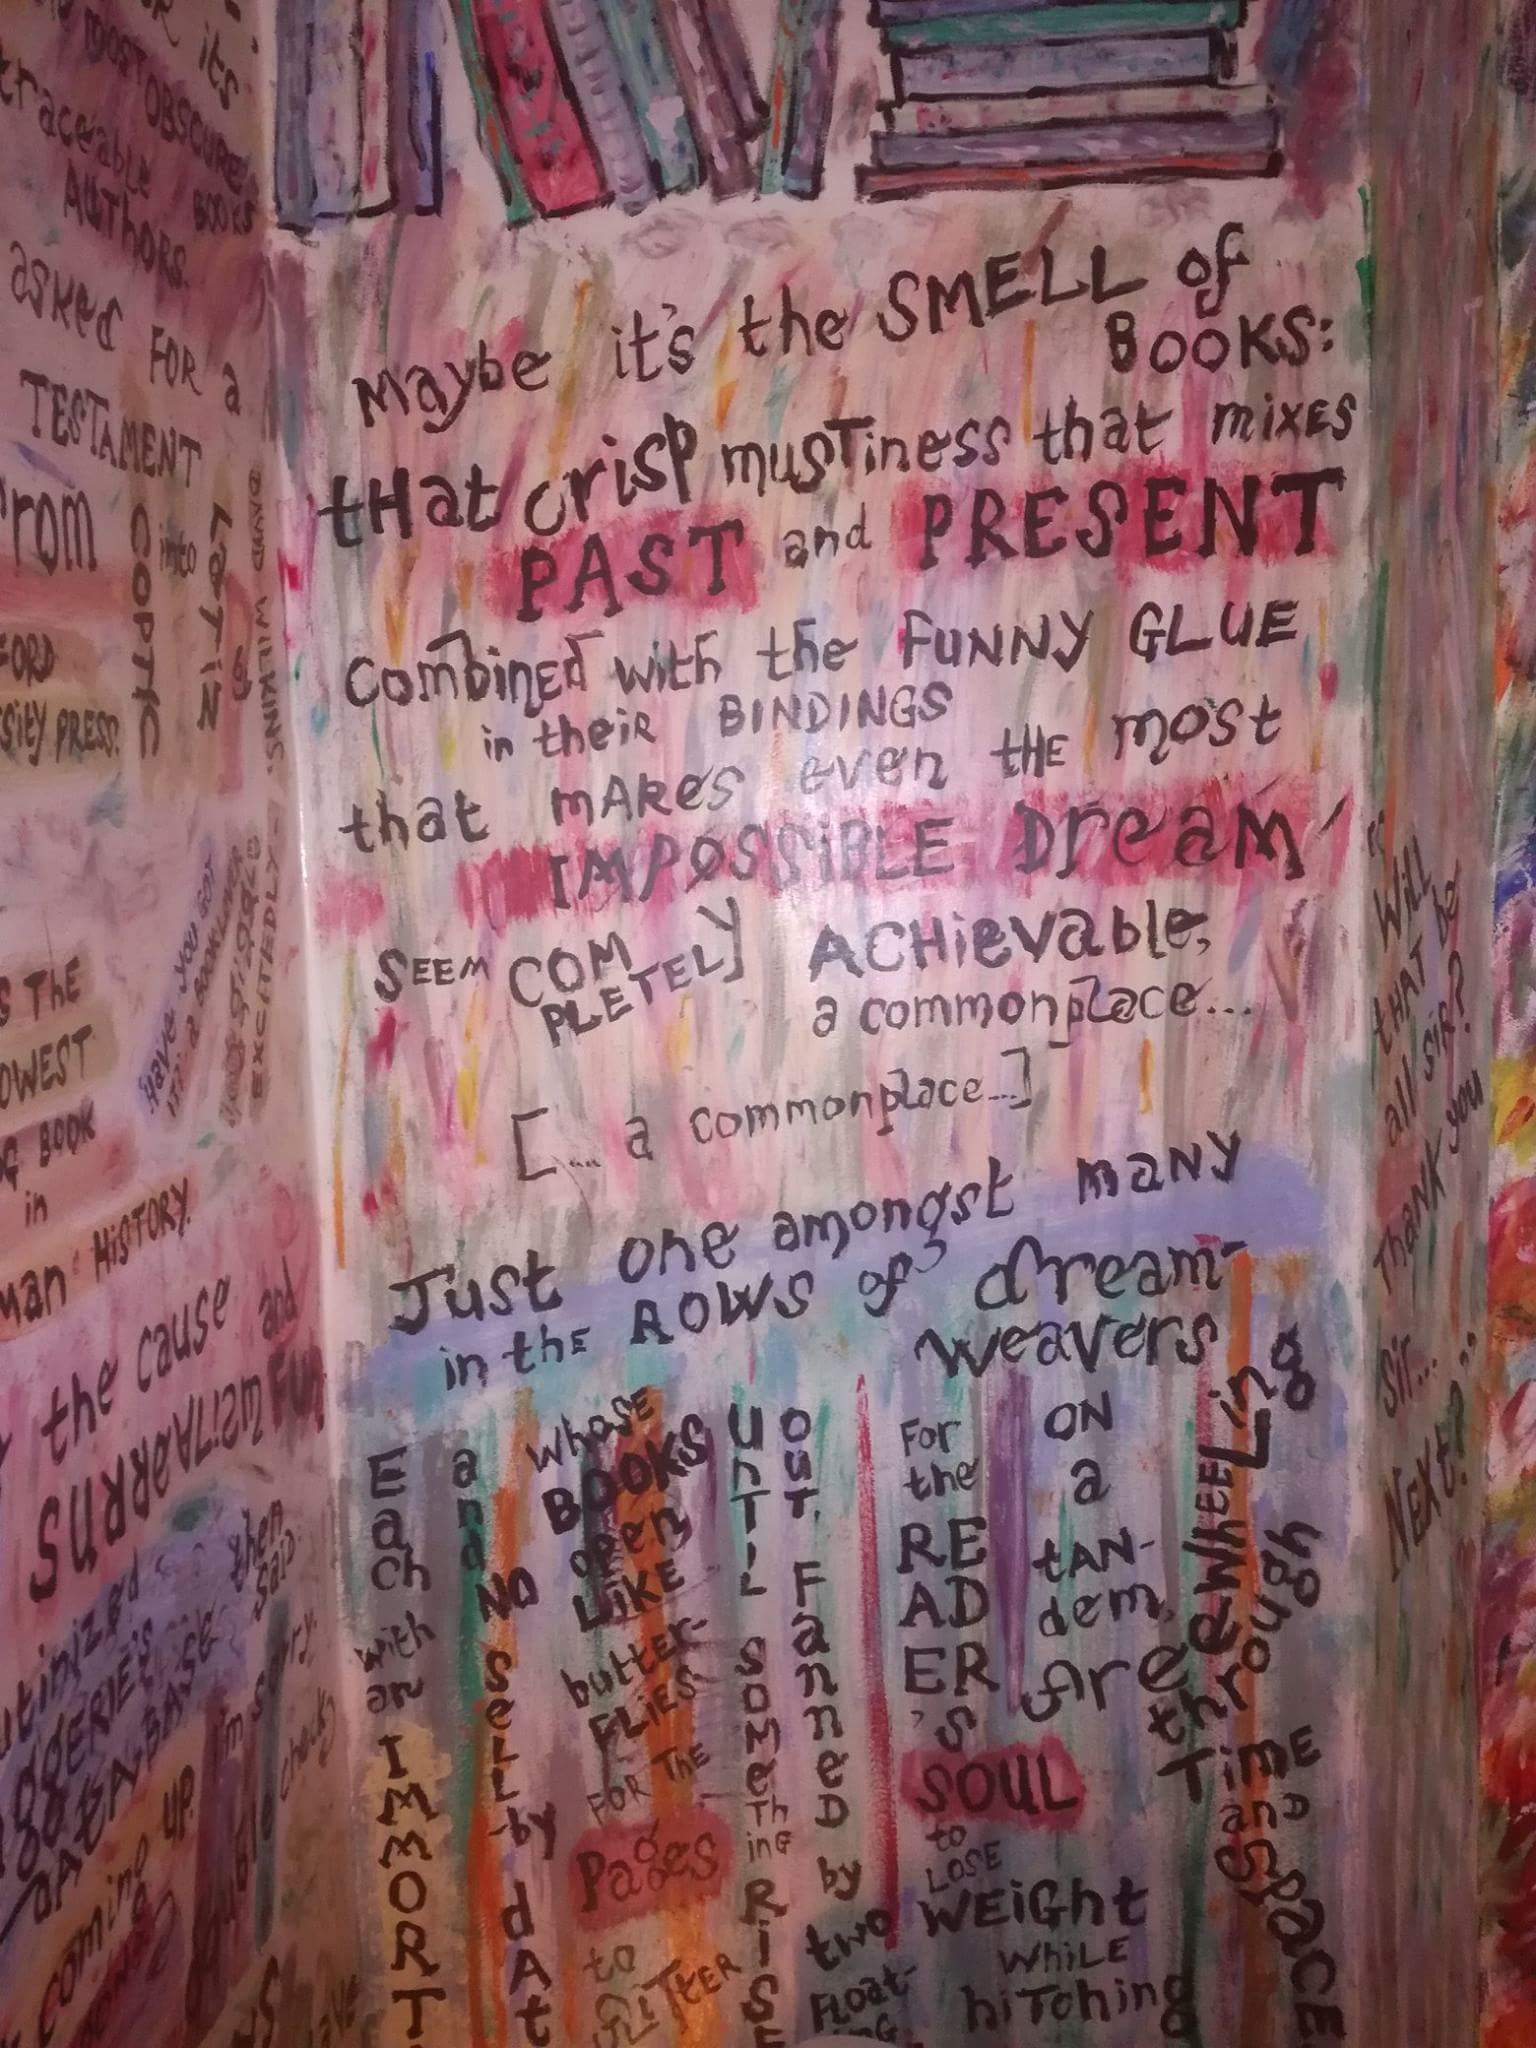 Maybe it's the SMELL of
BOOKS:
tHat crisp musTiness that mixes
PAST and PRESENT
combinEd with the FUNNY GLUE
in theiR BINDINGS
that mAKes even tHE most
IMPOSSiBLE Dream
SEEM COM PLETELY ACHiEVable,
a commonplace...
[... a commonplace...]
Just one amongst many
in the ROWS of dream-
weavers
Each with an IMMORT
and NO SeLL-by dAt
whose BOOKS open LiKE butter-FLiES FOR THE Pages to GLiTTER
UnTIL SOMeTHinG RiSE
OUT. FanneD by two FLOAT-inG
For the READER'S SOUL to LOSE WEiGHt WHiLE hiTching
ON a tAN-dem,
FreewHEELing through TimE and SPACE
R its
most OBSCURE
traceable BOOKS
AUTHORS.
asked FOR a
TESTAMENT
from COPTIC into LaTiN
FORD
sity PRESS.
DAVID WILKINS.
Have you got
iT?: a BOOKLOVER
EXCITEDLY
S THE
OWEST
G BOOK
in
man HiSTORY.
the cause and
SURREALiSM FUN
then
said:
utinized
DATA-BASE
I'm sorry.
checks
coming UP.
Will
tHAT be
all SiR?
Thank you
Sir...
Next?..